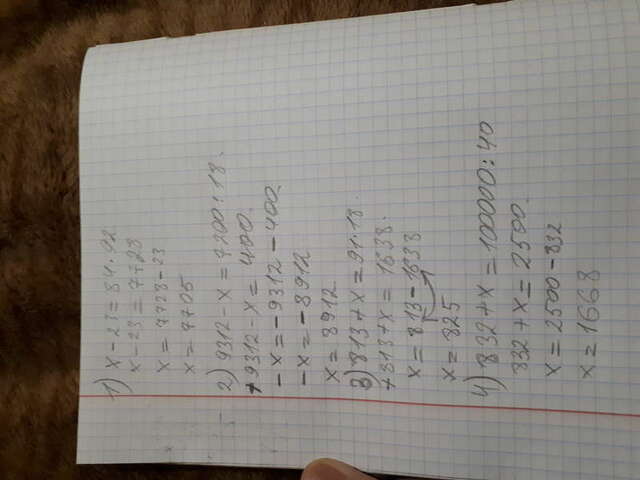 1) x - 23 = 84 · 92
x - 23 = 7728
x = 7728 - 23
x = 7705
2) 9312 - x = 7200 : 18.
+9312 - x = 400.
- x = - 9312 - 400
- x = - 8912
x = 8912
3) 813 + x = 91 · 18.
+813 + x = 1638.
x = 813 - 1638
x = 825
4) 832 + x = 100000 : 40
832 + x = 2500.
x = 2500 - 832
x = 1668